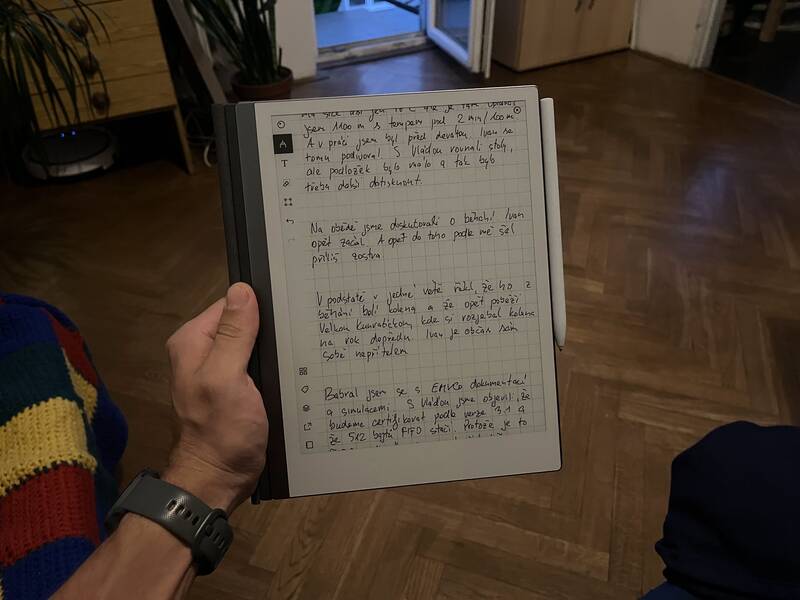 jsem 1100 m s tempem pod 2 min/100m
A v práci jsem byl před devátou. Ivan se
tomu podivoval. S Vláďou rovnali stoly,
ale podložek bylo málo a tak bylo
třeba další dotisknout.
Na obědě jsme diskutovali o běhání. Ivan
opět začal. A opět do toho podle mě šel
příliš zostra.
V podstatě v jedné větě řekl, že ho z
běhání bolí kolena a že opět poběží
Velkou Kunratickou, kde si rozjebal kolena
na rok dopředu. Ivan je občas sám
sobě nepřítelem
Babral jsem se s EMVCo dokumentací
a simulacemi. S Vláďou jsme objevili, že
budeme certifikovat podle verze 3.1 a
že 512 bytů FIFO stačí. Protože je to